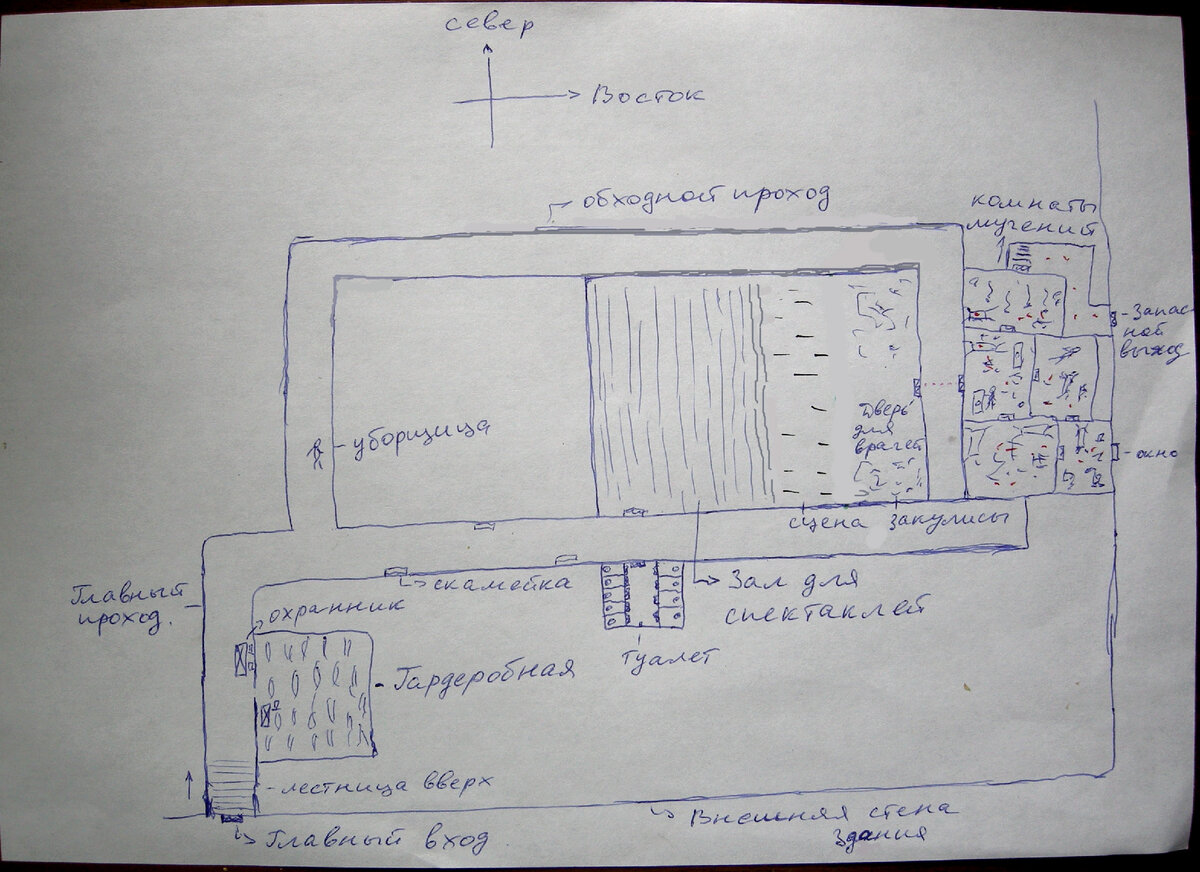 север
Восток
обходной проход
комнаты
мучений
Запас
ной
выход
уборщица
Дверь
для
врагей
окно
сцена закулисы
Главный
проход.
скамейка
Зал для
спектаклей
охранник
туалет
Гардеробная
лестница вверх
Внешняя стена
здания
Главный вход